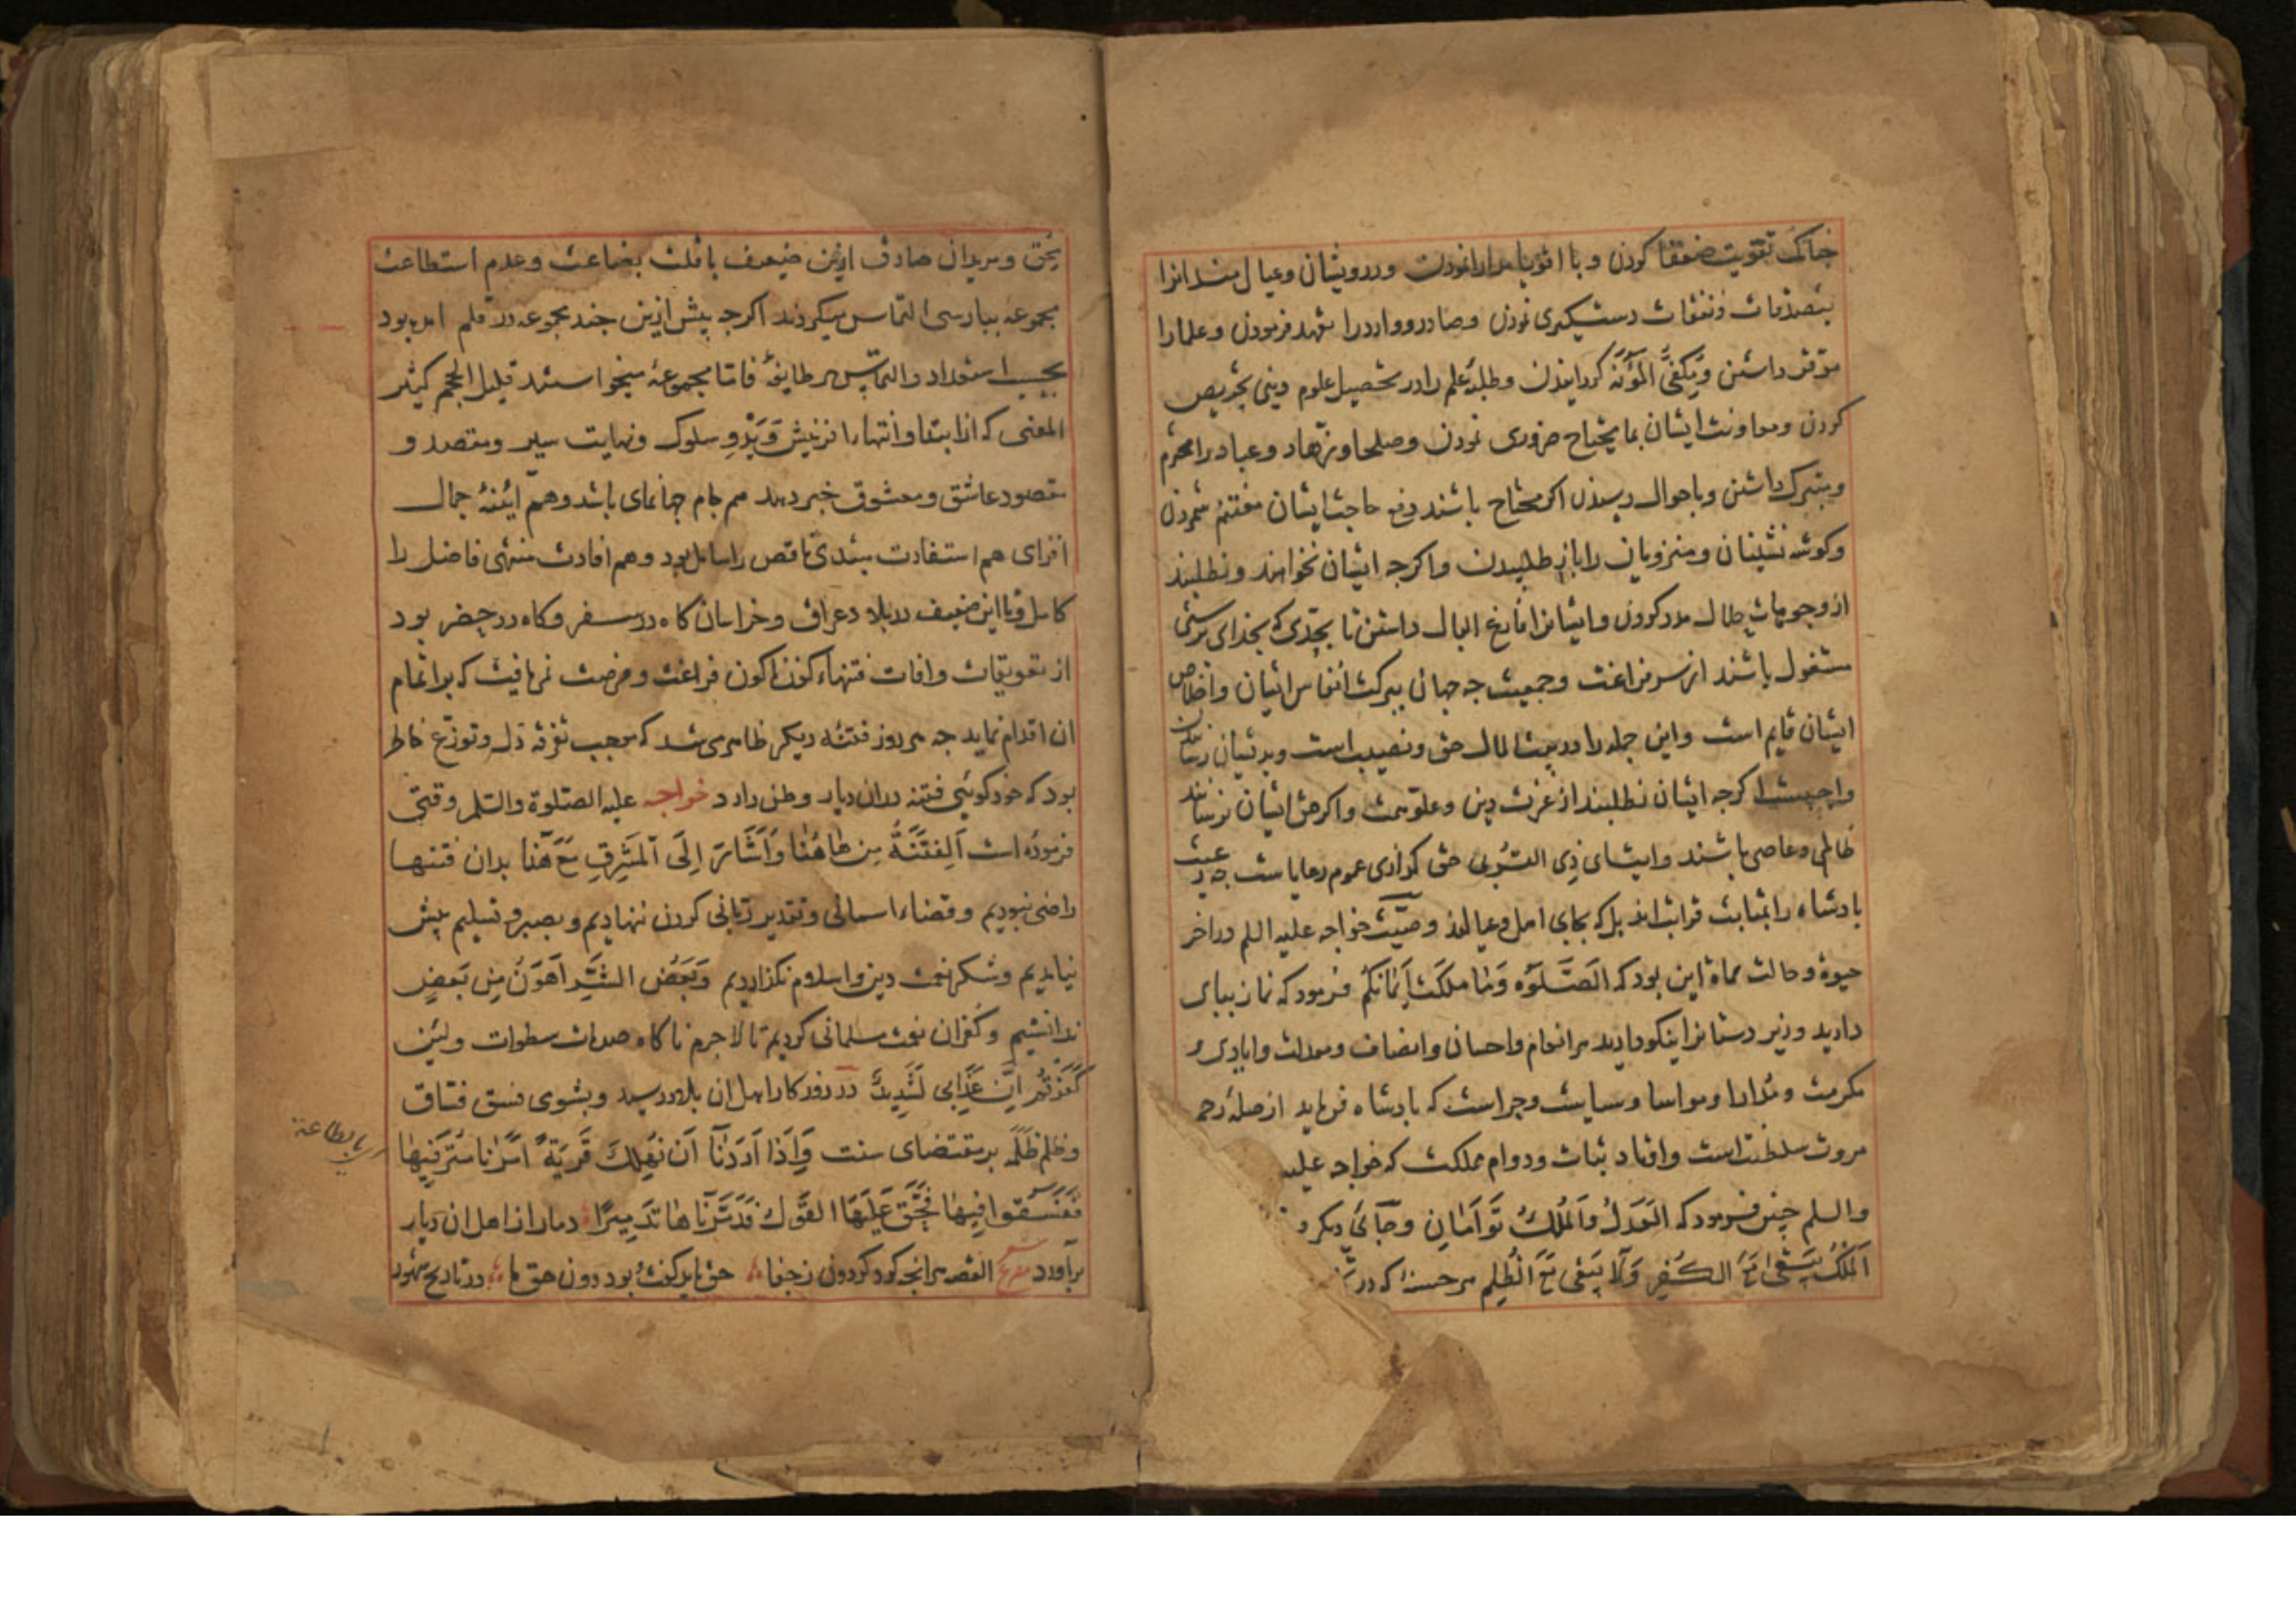 چنانک تقویت ضعفا کردن و با اقویا مدارا نمودن و درویشان و عیال مندانرا
بتصدقات و نفقات دستگیری نمودن و صادر و وارد را تعهد فرمودن و علما را
موقر داشتن و یکفی المؤنه گردانیدن و طلبهٔ علم را در تحصیل علوم دینی تحریص
کردن و معاونت ایشان بما یحتاج ضروری نمودن و صلحا و زهاد و عباد را محترم
و متبرک داشتن و باحوال رسیدن اکر محتاج باشند دفع حاجت ایشان مغتنم شمردن
و کوشه نشینان و منزویان را باز طلبیدن و اکرچه ایشان نخواهند و نطلبند
از وجوهات حلال مدد کردن و ایشانرا فارغ البال داشتن تا بجدی که بخدای پرستی
مشغول باشند از سر فراغت و جمعیت چه جهان ببرکت انفاس ایشان و اخلاص
ایشان قایم است و این جمله را در بیت المال حق و نصیب است و بدیشان رسانیدن
واجبست اکرچه ایشان نطلبند از عزت دین و علو همت و اکر حق ایشان نرسانند
ظالم و عاصی باشند و ایتای ذی القربی حق گزاردی عموم رعایاست چه رعیت
بادشاه را بمثابت قرابت‌اند بل که بجای اهل و عیال‌اند وصیّت خواجه علیه السلم در آخر
حیوة و حالت مماة این بود که الصَّلوٰة وَمَا مَلَکَت اَیمَانُکُم فرمود که نماز بپای
دارید و زیر دستانرا نیکو دارید هر انعام و احسان و انصاف و معدلت و ایادی و
مکرمت و مدارا و مواسا و سیاست و حراست که بادشاه فرماید از صلهٔ رحم
مروت سلطنت است و اوتاد ثبات و دوام مملکت که خواجه علیه
والسلم چنین فرمود که العَدلُ وَالمُلکُ تَوأَمَانِ و جائی دیکر فر
اَلمُلکُ یَبقٰی مَعَ الکُفرِ وَلَا یَبقٰی مَعَ الظُّلمِ هر حسنهٔ که در
محق و مریدان صادق ازین ضعیف با قلت بضاعت و عدم استطاعت
مجموعهٔ ببارسی التماس میکردند اکرچه پیش ازین چند مجموعه در قلم امده بود
بحسب استعداد و التماس هر طایفهٔ فاما مجموعهٔ میخواستند قلیل الحجم کثیر
المعنی که از ابتدا و انتها افرینش وَبَدْوِ سلوک و نهایت سیر و مقصد و
مقصود عاشق و معشوق خبر دهد هم جام جهانمای باشد و هم آئینهٔ جمال
افزای هم استفادت مبتدی ناقص را شامل بود و هم افادت منتهی فاضل را
کامل و با این ضعیف در بلاد عراق و خراسان کاه در سفر و کاه در حضر بود
از تعویقات و افات فتنهاء کوناکون فراغت و فرصت نمی یافت که بر اتمام
ان اقدام نماید چه هر روز فتنه دیکر ظاهر می شد که موجب تفرقه دل و توزّع خاطر
بود که خود کوئی فتنه در ان دیار وطن دارد خواجه علیه الصلوة والسلم وقتی
فرموده است اَلفِتنَةُ مِن هٰاهُنٰا وَاَشَارَ اِلَی المَشرِقِ مَعَ هٰذا بدان فتنها
راضی نبودیم و قضاء اسمانی و تقدیر ربانی کردن ننهادیم و بصبر و تسلیم پیش
نیامدیم و شکر نعمت دین و اسلام نکذاردیم وَبَعضُ الشَّرِّ اَهوَنُ مِن بَعضٍ
ندانستیم و کفران نعمت مسلمانی کردیم تا لاجرم ناکاه صدمات سطوات ولئن
کَفَرتُم اِنَّ عَذَابی لَشَدِیدٌ در روزکار اهل ان بلاد رسید و بشومی فسق فساق
و ظلم ظلمه بر مقتضای سنت وَاِذَا اَرَدنَا اَن نُهلِکَ قَریَةً اَمَرنَا مُترَفِیهَا
فَفَسَقُوا فِیهَا فَحَقَّ عَلَیهَا القَولُ فَدَمَّرنَاهَا تَدمِیرًا دمار از اهل ان دیار
براورد القصه هر انچه کرد کردون ز جفا حق باید گفت بود دون حق ما در تاریخ شهور
ای بالطاعة